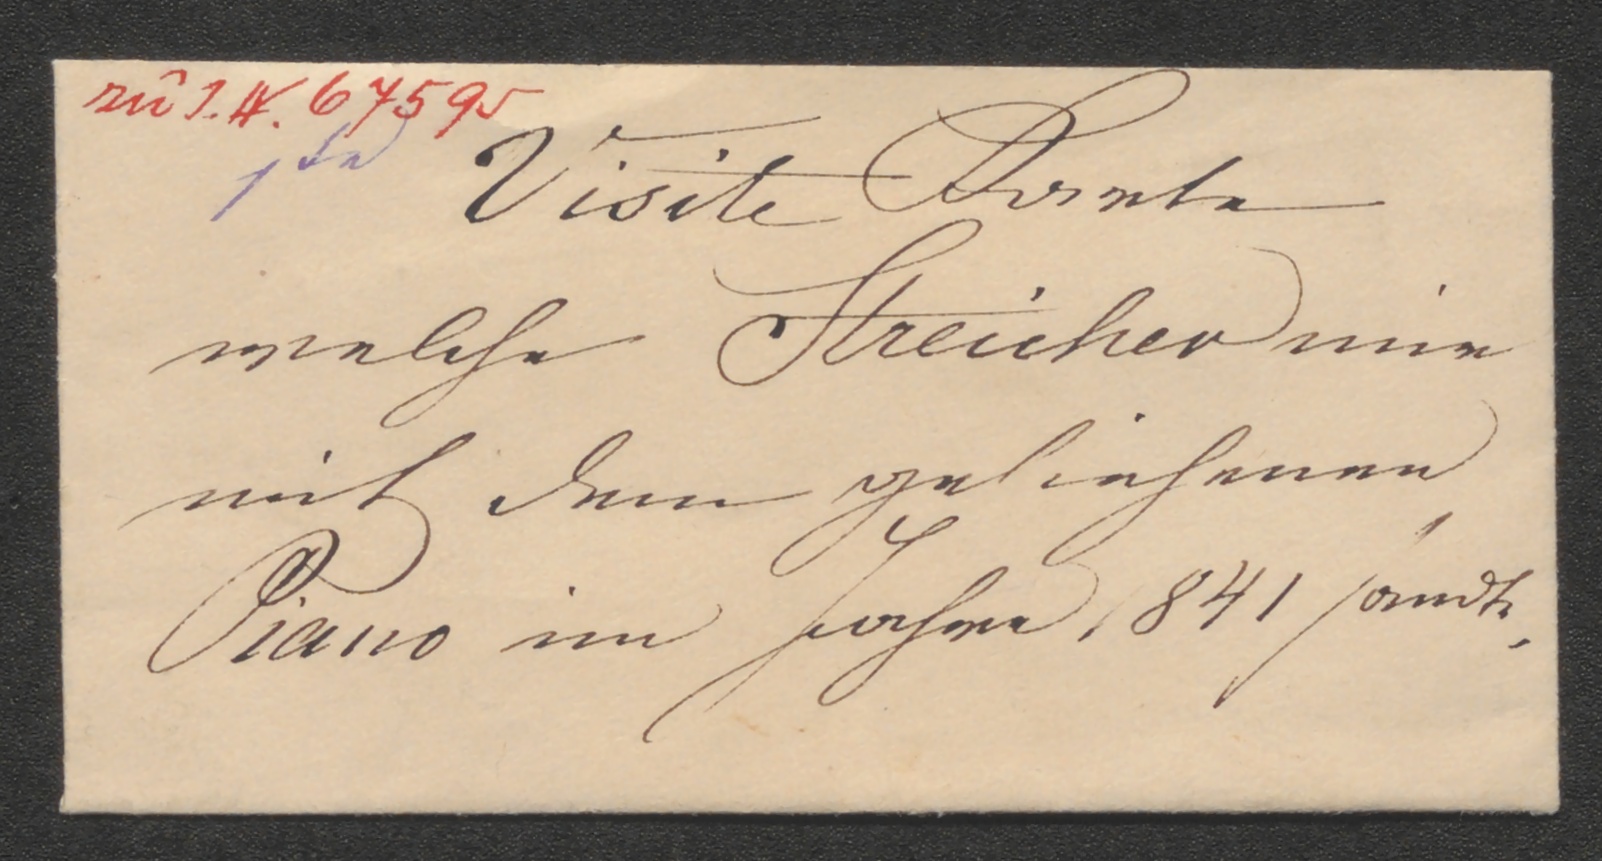 zu I.N. 67595
Visite Karte
welche Streicher mir
mit dem geliehenen
Piano im Jahre 1841 sandte.